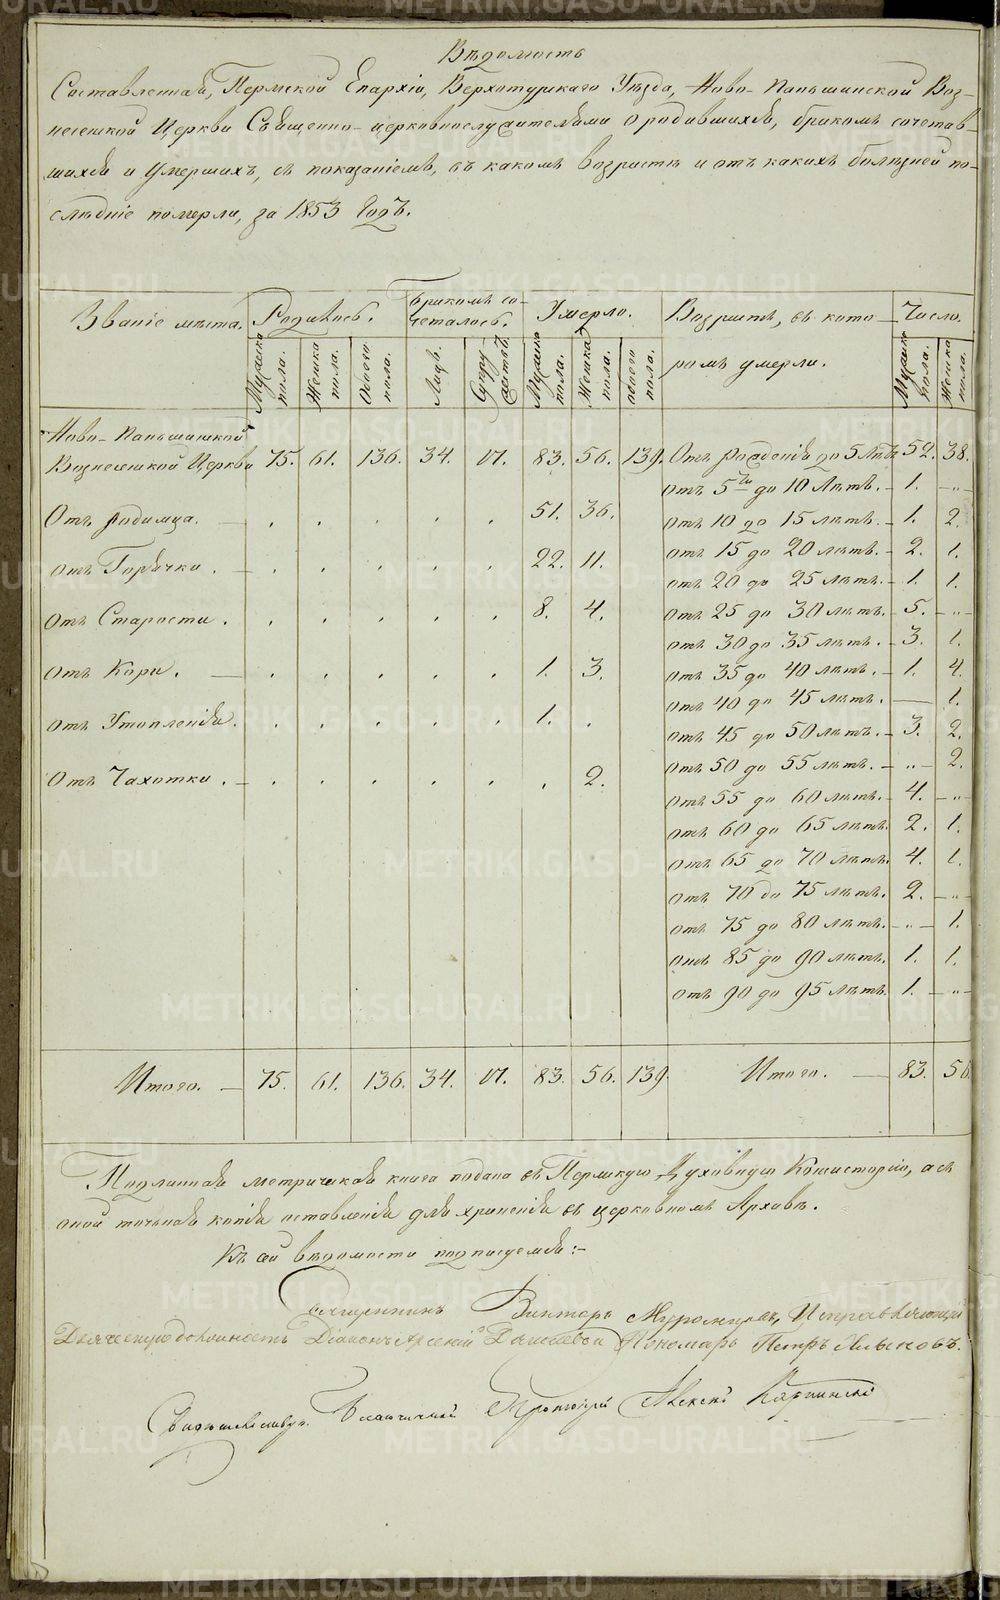 Вѣдомость
Составленная, Пермской Епархіи, Верхотурскаго Уѣзда, Ново-Паньшинской Воз-
несенской Церкви Священно-церковнослужителями о родившихся, бракомъ сочетав-
шихся и Умершихъ, съ показаніемъ, въ какомъ возрастѣ и отъ какихъ болѣзней по-
слѣдніе померли, за 1853 Годъ.
Званіе мѣста. Родилось. Бракомъ со-четалось. Умерло. Возрастъ, въ кото- Число.
Мужеска пола. Женска пола. Обоего пола. Лицъ. Супружествъ. Мужеска пола. Женска пола. обоего пола. ромъ умерли. Мужеска пола. Женска пола.
Ново-Паньшинской
Вознесенской Церкви 75. 61. 136. 34. 17. 83. 56. 139. Отъ рожденія до 5 Лѣтъ 52. 38.
отъ 5ти до 10 Лѣтъ. - 1. -„-
Отъ Родимца. - . . . . . 51. 36. отъ 10 до 15 лѣтъ. - 1. 2.
отъ 15 до 20 лѣтъ. - 2. 1.
отъ Горячки. - . . . . . 22. 11. отъ 20 до 25 лѣтъ. - 1. 1.
отъ Старости. . . . . . 8. 4. отъ 25 до 30 лѣтъ. - 5. -„-
отъ 30 до 35 лѣтъ. - 3. 1.
отъ Кори. - . . . . . 1. 3. отъ 35 до 40 лѣтъ. - 1. 4.
отъ 40 до 45 лѣтъ. - 1.
отъ Утопленія. . . . . . 1. . отъ 45 до 50 лѣтъ. - 3. 2.
отъ 50 до 55 лѣтъ. - „ - 2.
Отъ Чахотки. - . . . . . . 2. отъ 55 до 60 лѣтъ. - 4. -„-
отъ 60 до 65 лѣтъ. 2. 1.
отъ 65 до 70 лѣтъ. 4. 1.
отъ 70 до 75 лѣтъ. 2. -„-
отъ 75 до 80 лѣтъ. -„- 1.
отъ 85 до 90 лѣтъ. 1. 1.
отъ 90 до 95 лѣтъ. 1. -„-
Итого. - 75. 61. 136. 34. 17. 83. 56. 139. Итого. - 83. 56.
Подлинная метрическая книга подана въ Пермскую Духовную Консисторію, а съ
оной точная копія оставленія для храненія въ церковномъ Архивѣ.
Къ сей вѣдомости подписуемся:-
Священникъ Викторъ Исправляющій
Дьяческую должность Діаконъ Арсеній Пономарь Петръ
Свидѣтельствовалъ Благочинный Протоіерей Алексѣй Карпинскій
METRIKI.GASO-URAL.RU